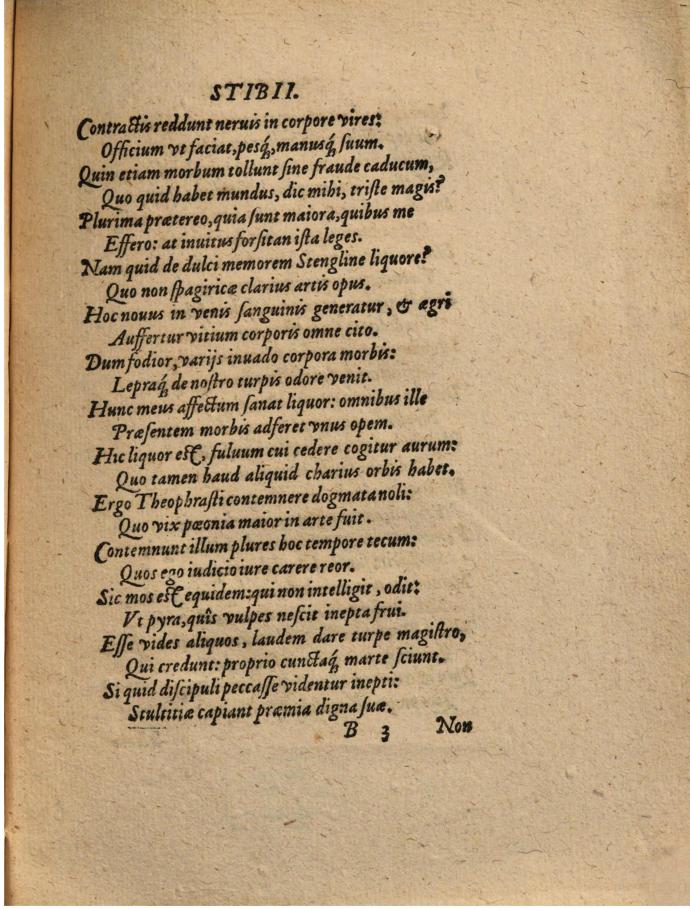 STIBII.
Contractis reddunt neruis in corpore vires:
Officium vt faciat, pesq́, manusq́ suum.
Quin etiam morbum tollunt sine fraude caducum,
Quo quid habet mundus, dic mihi, triste magis?
Plurima prætereo, quia sunt maiora, quibus me
Effero: at inuitus forsitan ista leges.
Nam quid de dulci memorem Stengline liquore?
Quo non spagiricæ clarius artis opus.
Hoc nouus in venis sanguinis generatur, & ægri
Auffertur vitium corporis omne cito.
Dum fodior, varijs inuado corpora morbis:
Lepraq́ de nostro turpis odore venit.
Hunc meus affectum sanat liquor: omnibus ille
Præsentem morbis adferet vnus opem.
Hic liquor est, fuluum cui cedere cogitur aurum:
Quo tamen haud aliquid charius orbis habet.
Ergo Theophrasti contemnere dogmata noli:
Quo vix pæonia maior in arte fuit.
Contemnunt illum plures hoc tempore tecum:
Quos ego iudicio iure carere reor.
Sic mos est equidem: qui non intelligit, odit:
Vt pyra, quîs vulpes nescit inepta frui.
Esse vides aliquos, laudem dare turpe magistro,
Qui credunt: proprio cunctaq́ marte sciunt.
Si quid discipuli peccasse videntur inepti:
Stultitiæ capiant præmia digna suæ.
B 3 Non